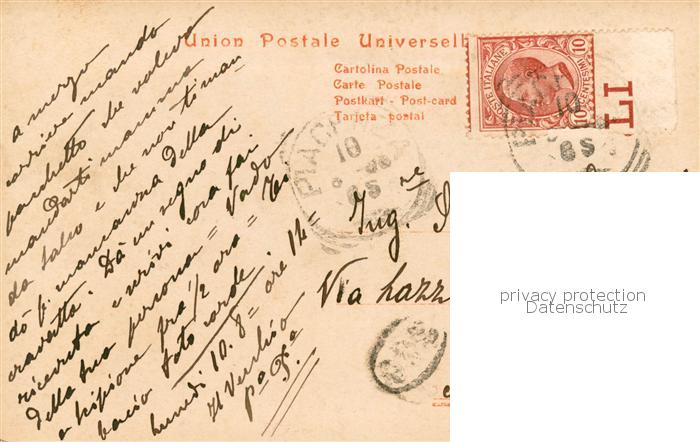 Union Postale Universell
Cartolina Postale
Carte Postale
Postkart - Post-card
Tarjeta postal
POSTE ITALIANE
CENTESIMI
10
10
LI
PIAC
10
8S
10
8S
a mezzo
corriere mando
pacchetto che voleva
mandarti mamma
da Salso e che non timan
dò p. mancanza della
cravatta. Dà un segno di
ricevuta e scrivi cosa fai
della tua persona = Vado
a ispione fra 1/2 ora =
bacio toto corde
lunedì 10.8= ore 12=
Il Vecchio
pa. Fa
Ing.re
Via Lazz
privacy protection
Datenschutz